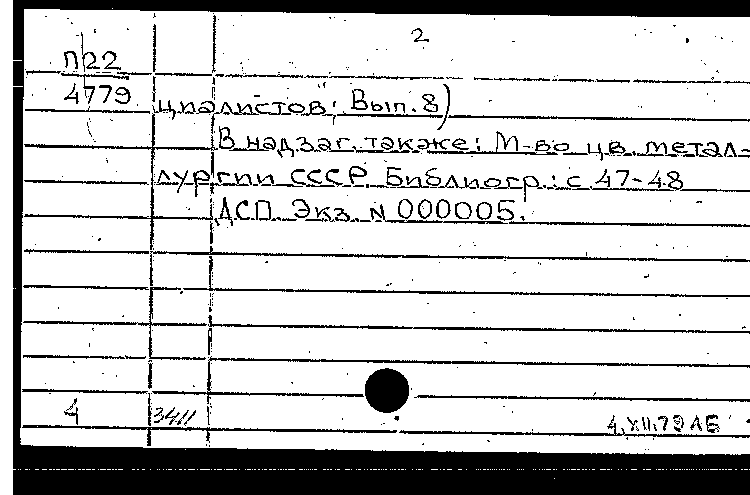 2
П22
4779
циалистов"; Вып. 8)
В надзаг. также: М-во цв. метал-
лургии СССР. Библиогр.: с. 47-48
ДСП. Экз. N 000005.
4
3411
4.XII.79 АБ